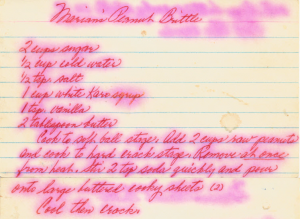 Miriam's Peanut Brittle
2 cups sugar
1/2 cup cold water
1/2 tsp salt
1 cup white Karo syrup
1 tsp vanilla
2 tablespoon butter
Cook to soft ball stage. Add 2 cups raw peanuts
and cook to hard crack stage. Remove at once
from heat. Stir 2 tsp soda quickly and pour
onto large buttered cooky sheets (2)
Cool then crack.